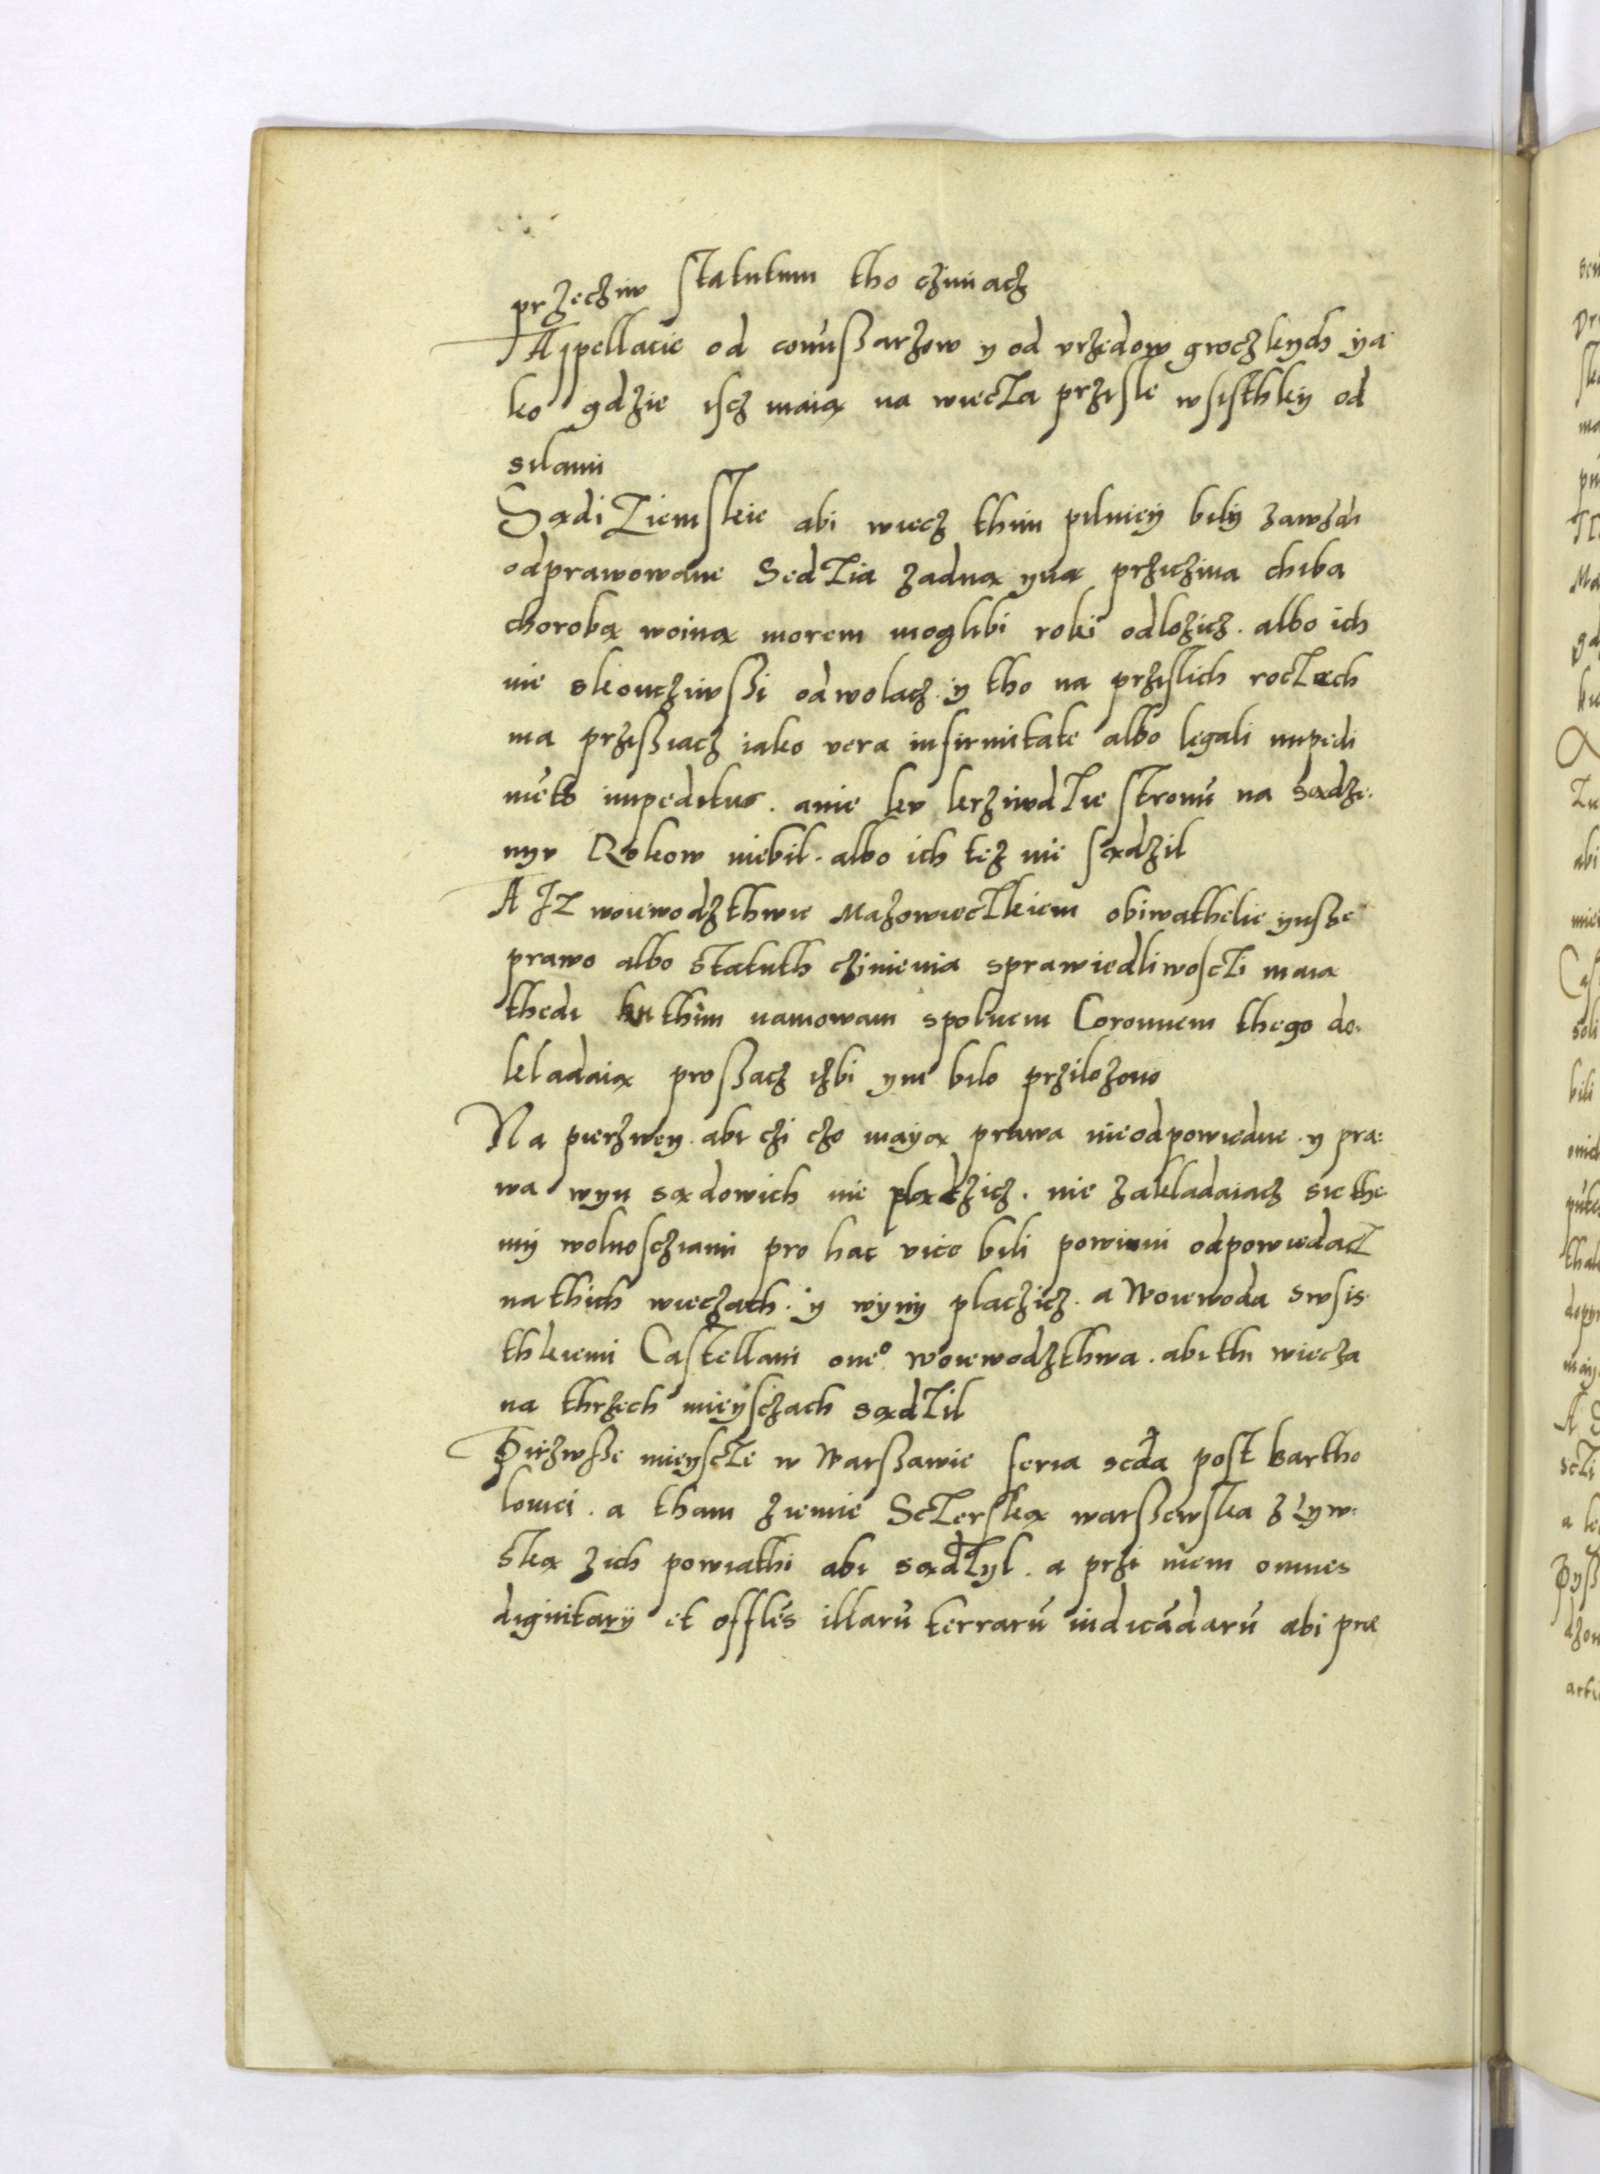 przeciw statutum tho cziniacz
Appellacie od comißarzow y od vrzedow groczkych ya
ko gdzie iscz maią na wiecza przisle wsisthky od
silami
Sądi Ziemskie abi wiecz thim pilniey bily zawzdi
odprawowane Sedzia zadną yną prziczina chiba
chorobą woiną morem moglibi roki odlozicz . albo ich
nie skonczÿwßi odwolacz . y tho na przislich roczech
ma przißiacz iako vera infirmitate albo legali impedi
mēto impeditus . anie kv krziwdzie stronÿ na sądze
nyv Rokow niebil . albo ich tez nie sądzil
A Iz woiewodzthwie Mazowieczkiem obiwathelie ynsße
prawo albo statuth czinienia sprawiedliwosczi maia
thedi ku thim namowam spolnem Coronnem thego do
kladaią proßacz izbi ym bilo prziłozono
Na pierzwey . abi czi czo mayą prawa nieodpowiedne . y pra
wa wyn sądowich nie placzicz . nie zakladaiacz sie the
my wolnoscziami pro hac vice bili powinni odpowiedacz
na thich wieczach . y wyny placzicz . a Woiewoda swsis
thkiemi Castellani oneº woiewodzthwa . abi thi wiecza
na thrzech mieysczach sądzil
Pirzwße mieyscze w Warßawie feria scda post Bartho
lomei . a tham ziemie Sczerską warßewska z Lyw
ską zich powiathi abi sądzyl . a przi niem omnes
dignitarÿ et offles illarū terrarū iudicādarū abi prae